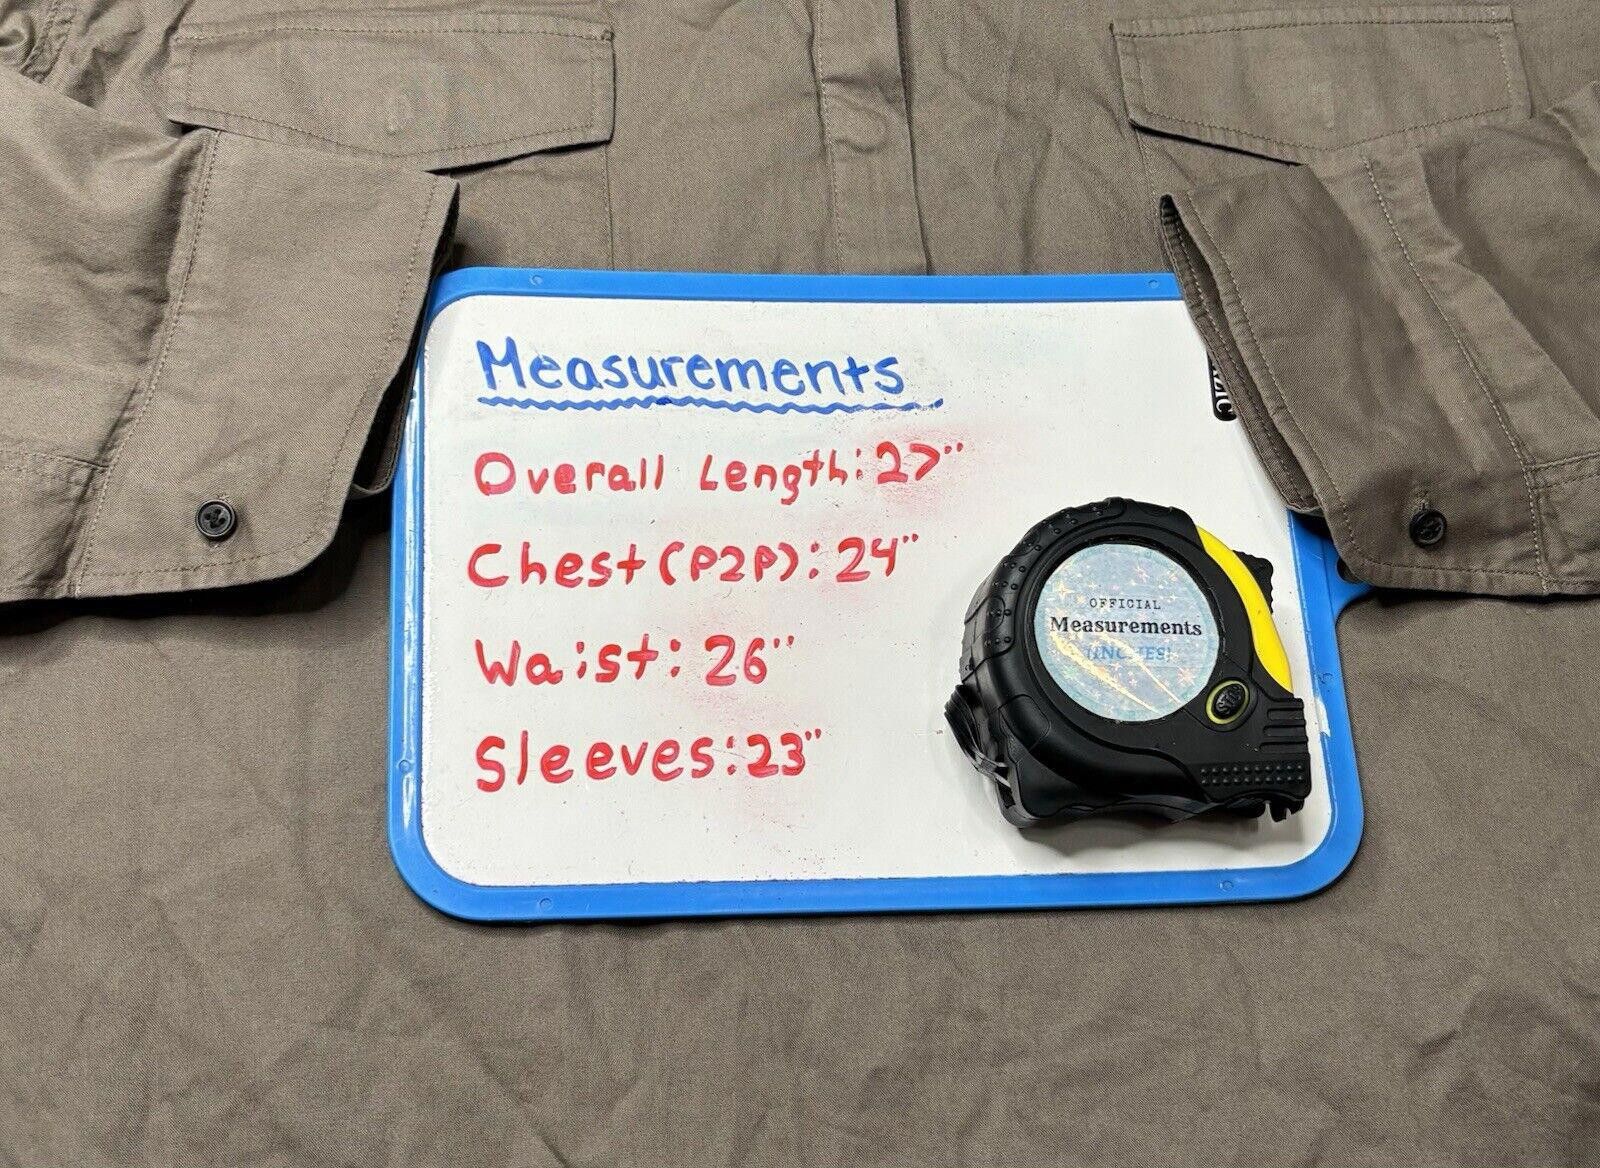 Measurements
Overall Length: 27"
Chest (P2P): 24"
Waist: 26"
Sleeves: 23"
OFFICIAL
Measurements
(INCHES)